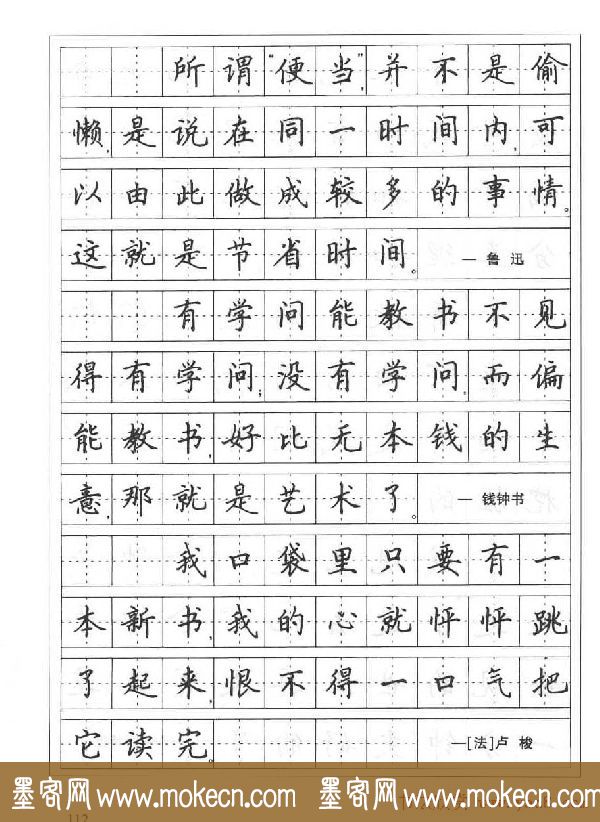 所谓“便当”，并不是偷
懒，是说在同一时间内，可
以由此做成较多的事情。
这就是节省时间。 —鲁迅
有学问能教书，不见
得有学问；没有学问，而偏
能教书，好比无本钱的生
意，那就是艺术了。 —钱钟书
我口袋里只要有一
本新书，我的心就怦怦跳
了起来，恨不得一口气把
它读完。 —[法]卢梭
墨客网www.mokecn.com 墨客网www.mokecn.com
112